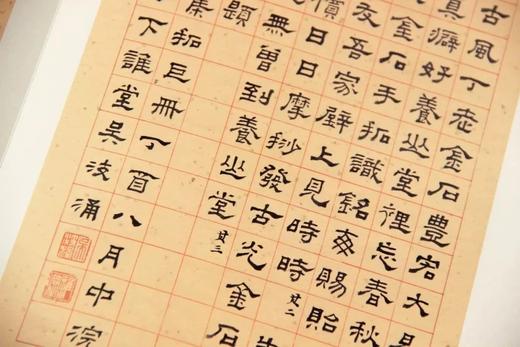 古風丁老金石豐大
真癖好養坐堂裡忘春秋
金石手拓識銘每賜貽
友吾家壁上見時時廿二
償日日摩挲發古光金石
無曾到養坐堂廿三
題
集拓巨冊丁百八月中浣
下誰堂吳浚涌